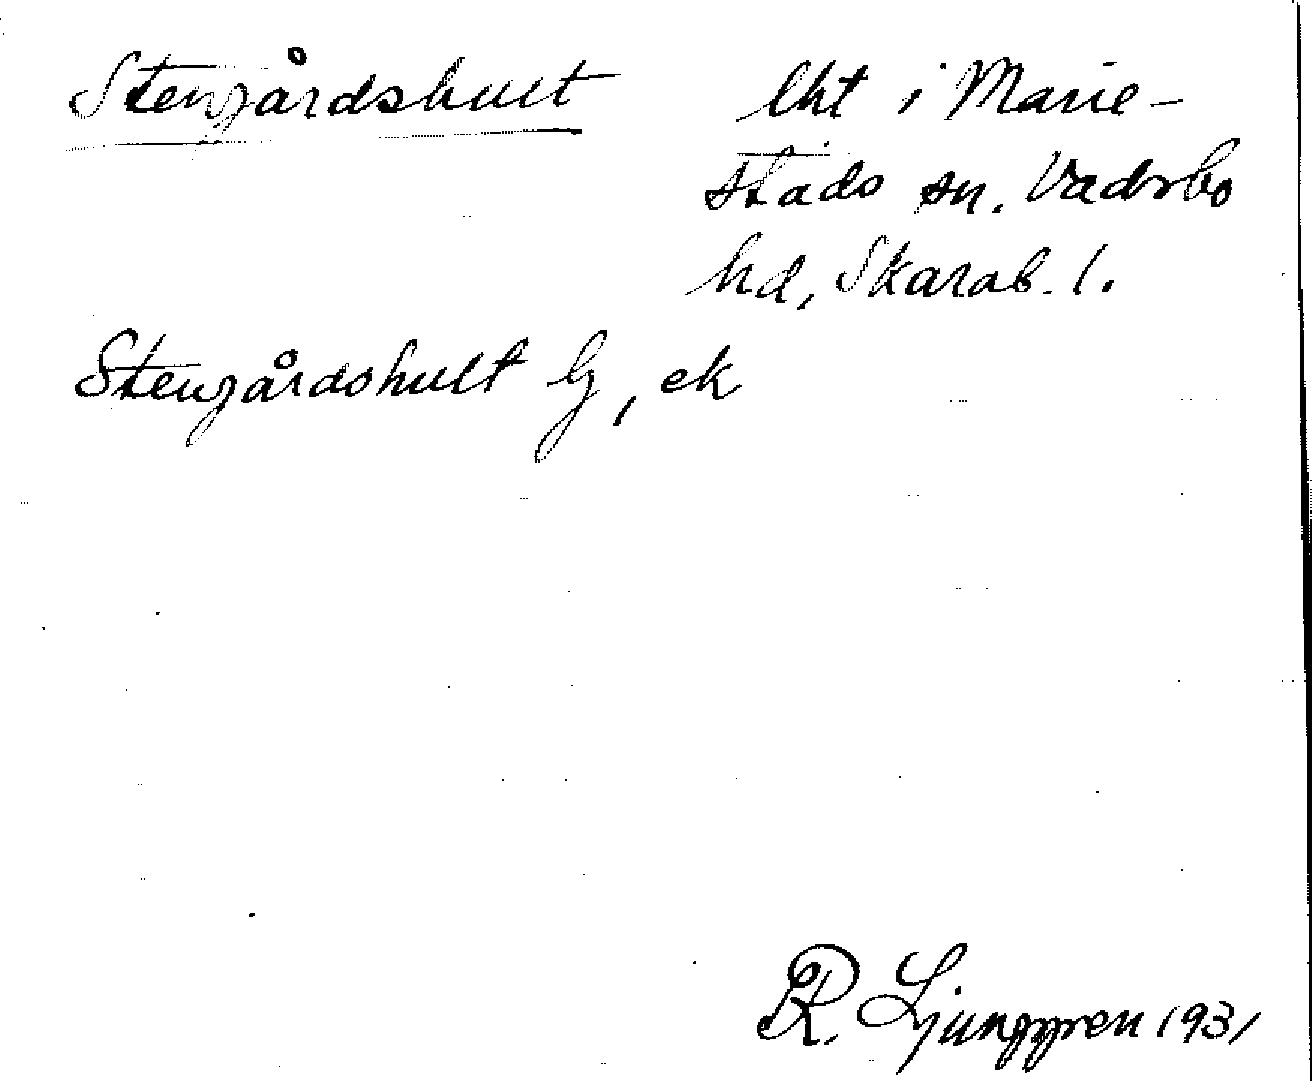 Stengårdshult lht i Marie-
stads sn. Vadsbo
hd, Skarab. l.
Stengårdshult G, ek
R. Ljunggren 1931